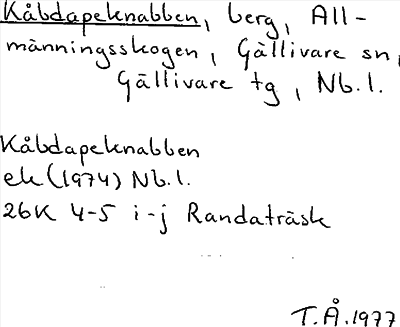 Kåbdapeknabben, berg, All-
männingsskogen, Gällivare sn,
Gällivare tg, Nb.l.
Kåbdapeknabben
ek (1974) Nb.l.
26K 4-5 i-j Randaträsk
T.Å.1977